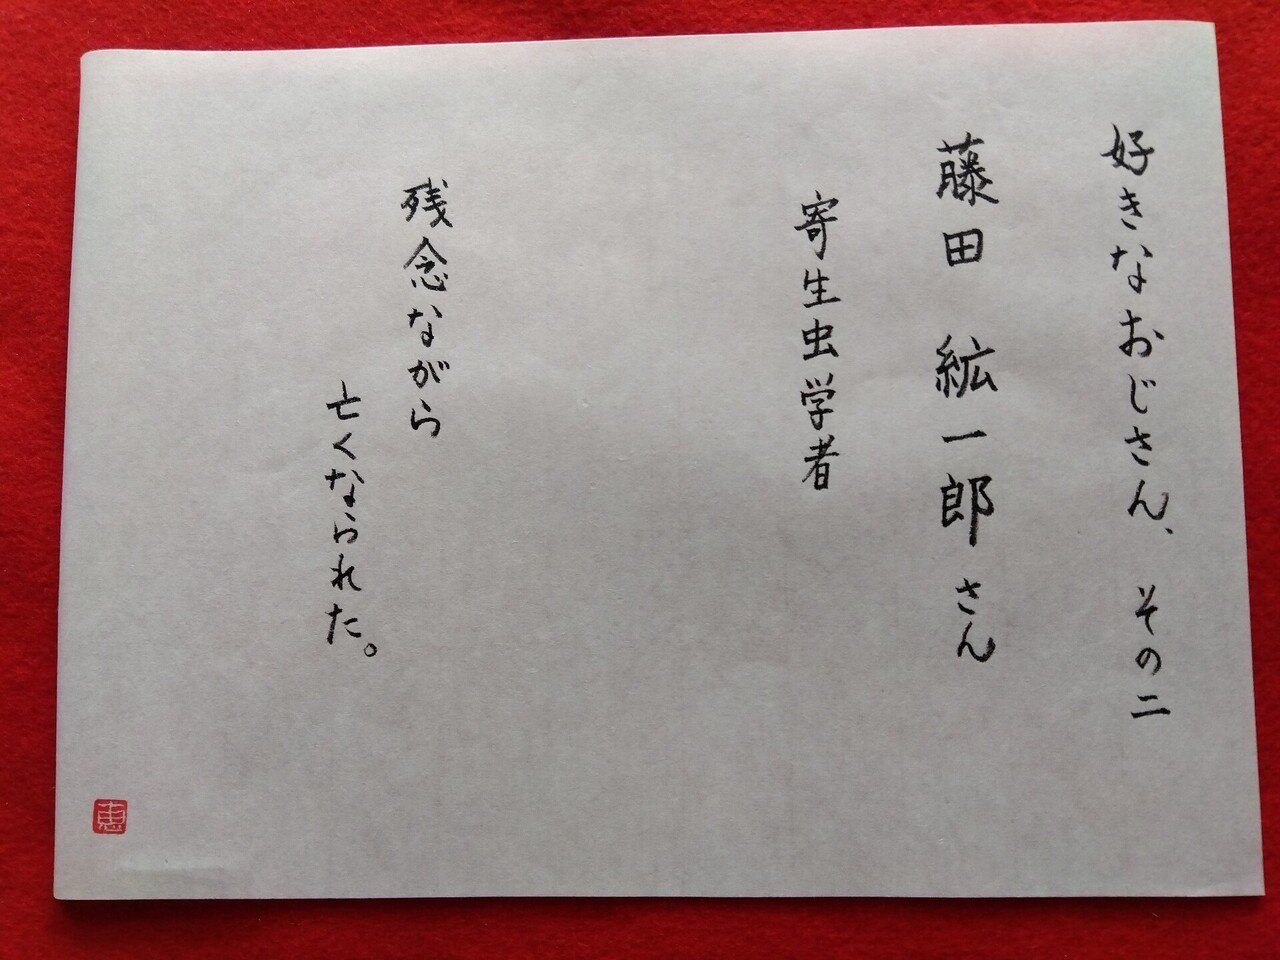 好きなおじさん、その二
藤田 紘一郎さん
寄生虫学者
残念ながら
亡くなられた。
恵